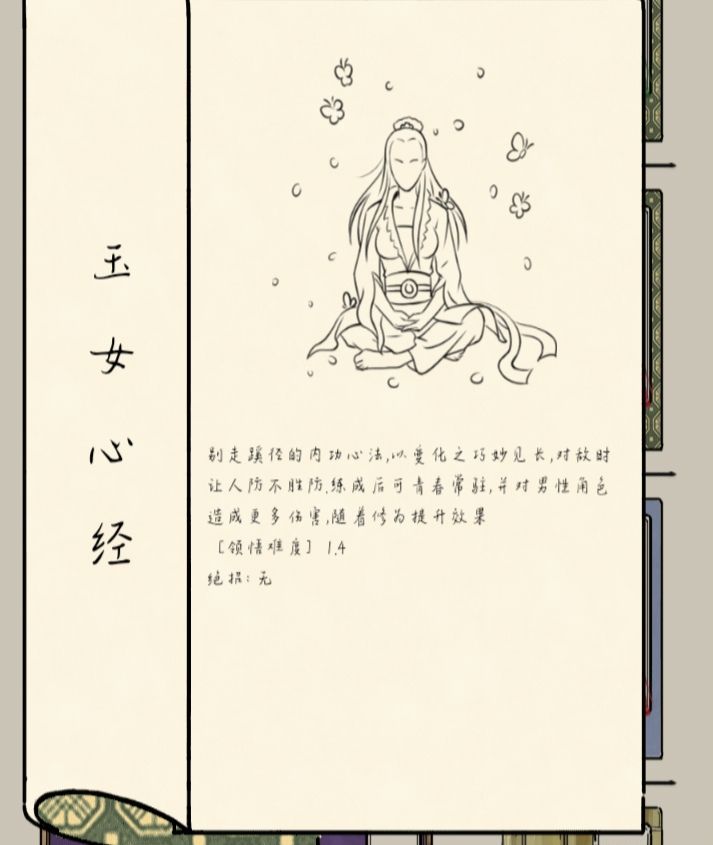 玉女心经
别走蹊径的内功心法,以变化之巧妙见长,对敌时
让人防不胜防.练成后可青春常驻,并对男性角色
造成更多伤害,随着修为提升效果
［领悟难度］1.4
绝招：无